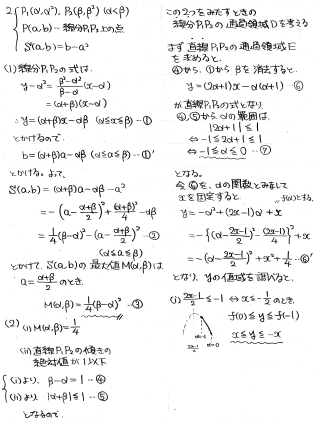 2 { P₁(α,α²), P₂(β,β²) (α<β)
P(a,b) … 線分P₁P₂上の点
S(a,b)=b-a²
(1) 線分P₁P₂の式は
y-α²=(β²-α²)/(β-α)(x-α)
=(α+β)(x-α)
∴ y=(α+β)x-αβ (α≦x≦β) …①
とかけるので
b=(α+β)a-αβ (α≦a≦β) …①'
とかける。よって、
S(a,b)=(α+β)a-αβ-a²
=-(a-(α+β)/2)²+(α+β)²/4-αβ
=1/4(β-α)²-(a-(α+β)/2)² …②
(α≦a≦β)
とかけて、S(a,b)の最大値M(α,β)は
a=(α+β)/2 のとき
M(α,β)=1/4(β-α)² …③
(2) (i) M(α,β)=1/4
(ii) 直線P₁P₂の傾きの
絶対値が1以下
{ (i)より、β-α=1 …④
(ii)より |α+β|≦1 …⑤
となるので、
この2つをみたすときの
線分P₁P₂の通過領域Dを考える
まず直線P₁P₂の通過領域E
を求めると、
④から、①からβを消去すると、
y=(2α+1)x-α(α+1) …⑥
が直線P₁P₂の式となり
④,⑤からαの範囲は
|2α+1|≦1
⇔ -1≦2α+1≦1
⇔ -1≦α≦0 …⑦
となる。
今⑥を、αの関数とみまして
xを固定すると f(α)とする。
y=-α²+(2x-1)α+x
=-{(α-(2x-1)/2)²-(2x-1)²/4}+x
=-(α-(2x-1)/2)²+x²+1/4 …⑥'
となり、yの値域を調べると、
(i) (2x-1)/2≦-1 ⇔ x≦-1/2 のとき、
f(0)≦y≦f(-1)
x≦y≦-x
(2x-1)/2 α=-1 α=0